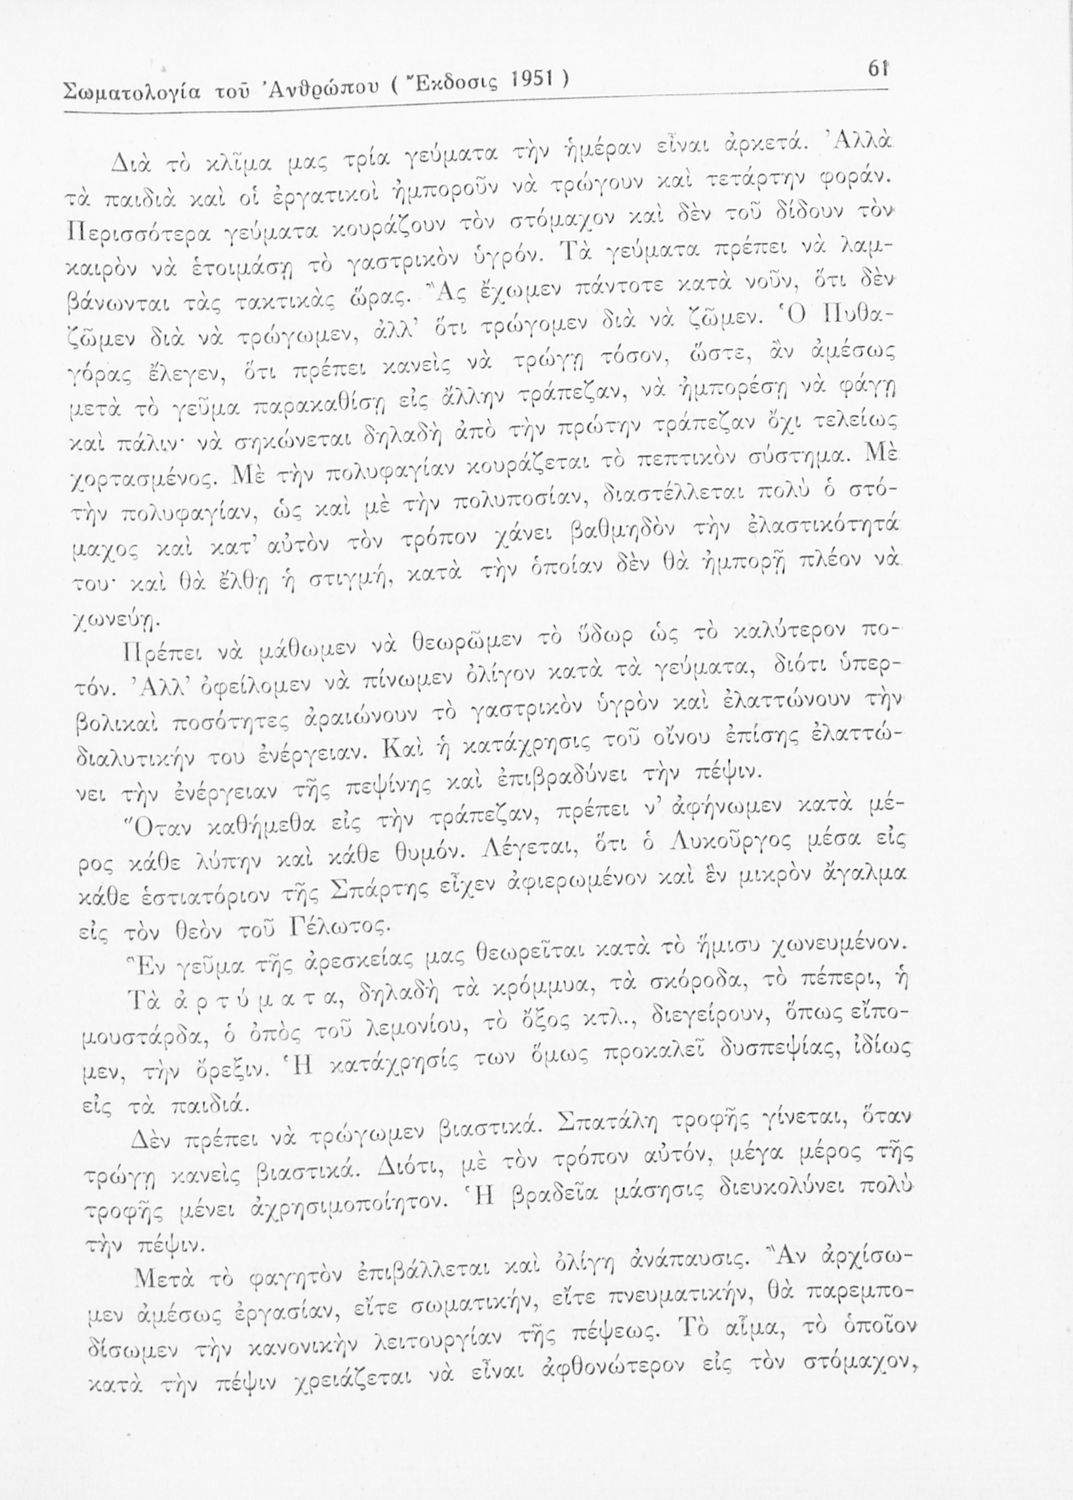 Σωματολογία τοῦ Ἀνθρώπου ( Ἔκδοσις 1951 ) 61
Διὰ τὸ κλῖμα μας τρία γεύματα τὴν ἡμέραν εἶναι ἀρκετά. Ἀλλὰ
τὰ παιδιὰ καὶ οἱ ἐργατικοὶ ἠμποροῦν νὰ τρώγουν καὶ τετάρτην φοράν.
Περισσότερα γεύματα κουράζουν τὸν στόμαχον καὶ δὲν τοῦ δίδουν τὸν
καιρὸν νὰ ἑτοιμάσῃ τὸ γαστρικὸν ὑγρόν. Τὰ γεύματα πρέπει νὰ λαμ-
βάνωνται τὰς τακτικὰς ὥρας. Ἂς ἔχωμεν πάντοτε κατὰ νοῦν, ὅτι δὲν
ζῶμεν διὰ νὰ τρώγωμεν, ἀλλ’ ὅτι τρώγομεν διὰ νὰ ζῶμεν. Ὁ Πυθα-
γόρας ἔλεγεν, ὅτι πρέπει κανεὶς νὰ τρώγῃ τόσον, ὥστε, ἂν ἀμέσως
μετὰ τὸ γεῦμα παρακαθίσῃ εἰς ἄλλην τράπεζαν, νὰ ἠμπορέσῃ νὰ φάγῃ
καὶ πάλιν· νὰ σηκώνεται δηλαδὴ ἀπὸ τὴν πρώτην τράπεζαν ὄχι τελείως
χορτασμένος. Μὲ τὴν πολυφαγίαν κουράζεται τὸ πεπτικὸν σύστημα. Μὲ
τὴν πολυφαγίαν, ὡς καὶ μὲ τὴν πολυποσίαν, διαστέλλεται πολὺ ὁ στό-
μαχος καὶ κατ’ αὐτὸν τὸν τρόπον χάνει βαθμηδὸν τὴν ἐλαστικότητά
του· καὶ θὰ ἔλθῃ ἡ στιγμή, κατὰ τὴν ὁποίαν δὲν θὰ ἠμπορῇ πλέον νὰ
χωνεύῃ.
Πρέπει νὰ μάθωμεν νὰ θεωρῶμεν τὸ ὕδωρ ὡς τὸ καλύτερον πο-
τόν. Ἀλλ’ ὀφείλομεν νὰ πίνωμεν ὀλίγον κατὰ τὰ γεύματα, διότι ὑπερ-
βολικαὶ ποσότητες ἀραιώνουν τὸ γαστρικὸν ὑγρὸν καὶ ἐλαττώνουν τὴν
διαλυτικήν του ἐνέργειαν. Καὶ ἡ κατάχρησις τοῦ οἴνου ἐπίσης ἐλαττώ-
νει τὴν ἐνέργειαν τῆς πεψίνης καὶ ἐπιβραδύνει τὴν πέψιν.
Ὅταν καθήμεθα εἰς τὴν τράπεζαν, πρέπει ν’ ἀφήνωμεν κατὰ μέ-
ρος κάθε λύπην καὶ κάθε θυμόν. Λέγεται, ὅτι ὁ Λυκοῦργος μέσα εἰς
κάθε ἑστιατόριον τῆς Σπάρτης εἶχεν ἀφιερωμένον καὶ ἓν μικρὸν ἄγαλμα
εἰς τὸν θεὸν τοῦ Γέλωτος.
Ἓν γεῦμα τῆς ἀρεσκείας μας θεωρεῖται κατὰ τὸ ἥμισυ χωνευμένον.
Τὰ ἀρτύματα, δηλαδὴ τὰ κρόμμυα, τὰ σκόροδα, τὸ πέπερι, ἡ
μουστάρδα, ὁ ὀπὸς τοῦ λεμονίου, τὸ ὄξος κτλ., διεγείρουν, ὅπως εἴπο-
μεν, τὴν ὄρεξιν. Ἡ κατάχρησίς των ὅμως προκαλεῖ δυσπεψίας, ἰδίως
εἰς τὰ παιδιά.
Δὲν πρέπει νὰ τρώγωμεν βιαστικά. Σπατάλη τροφῆς γίνεται, ὅταν
τρώγῃ κανεὶς βιαστικά. Διότι, μὲ τὸν τρόπον αὐτόν, μέγα μέρος τῆς
τροφῆς μένει ἀχρησιμοποίητον. Ἡ βραδεῖα μάσησις διευκολύνει πολὺ
τὴν πέψιν.
Μετὰ τὸ φαγητὸν ἐπιβάλλεται καὶ ὀλίγη ἀνάπαυσις. Ἂν ἀρχίσω-
μεν ἀμέσως ἐργασίαν, εἴτε σωματικήν, εἴτε πνευματικήν, θὰ παρεμπο-
δίσωμεν τὴν κανονικὴν λειτουργίαν τῆς πέψεως. Τὸ αἷμα, τὸ ὁποῖον
κατὰ τὴν πέψιν χρειάζεται νὰ εἶναι ἀφθονώτερον εἰς τὸν στόμαχον,